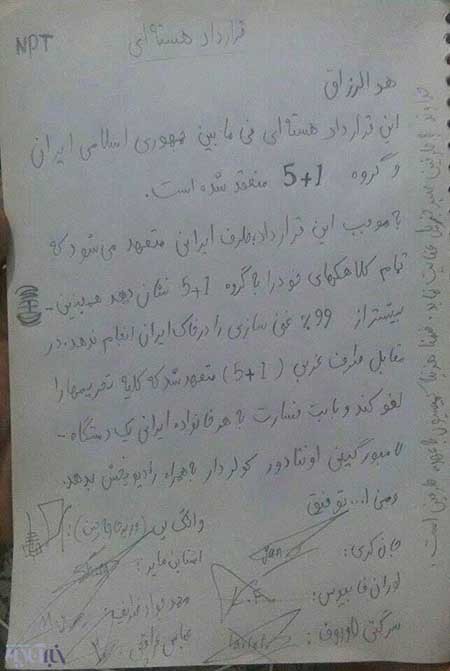 NPT
قرارداد هسته‌ای
هوالرزاق
این قرارداد هسته‌ای فی مابین جمهوری اسلامی ایران
و گروه 5+1 منعقد شده است.
باموجب این قرارداد، طرف ایرانی متعهد می‌شود که
تمام کلاهکهای خود را با گروه 5+1 نشان دهد همچنین
بیشتر از 99% غنی سازی را در خاک ایران انجام ندهد. در
مقابل طرف غربی (5+1) متعهد شد که کلیه تحریمها را
لغو کند و بابت خسارت با هر خانواده ایرانی یک دستگاه
لامبورگینی اونتادور کولردار باهمراه رادیو پخش بدهد.
ومن ا... توفیق
وانگ یی
جان کری:
اشتاین مایر:
لوران فابیوس:
L.F
محمد جواد ظریف:
سرگئی لاوروف:
عباس عراقچی: